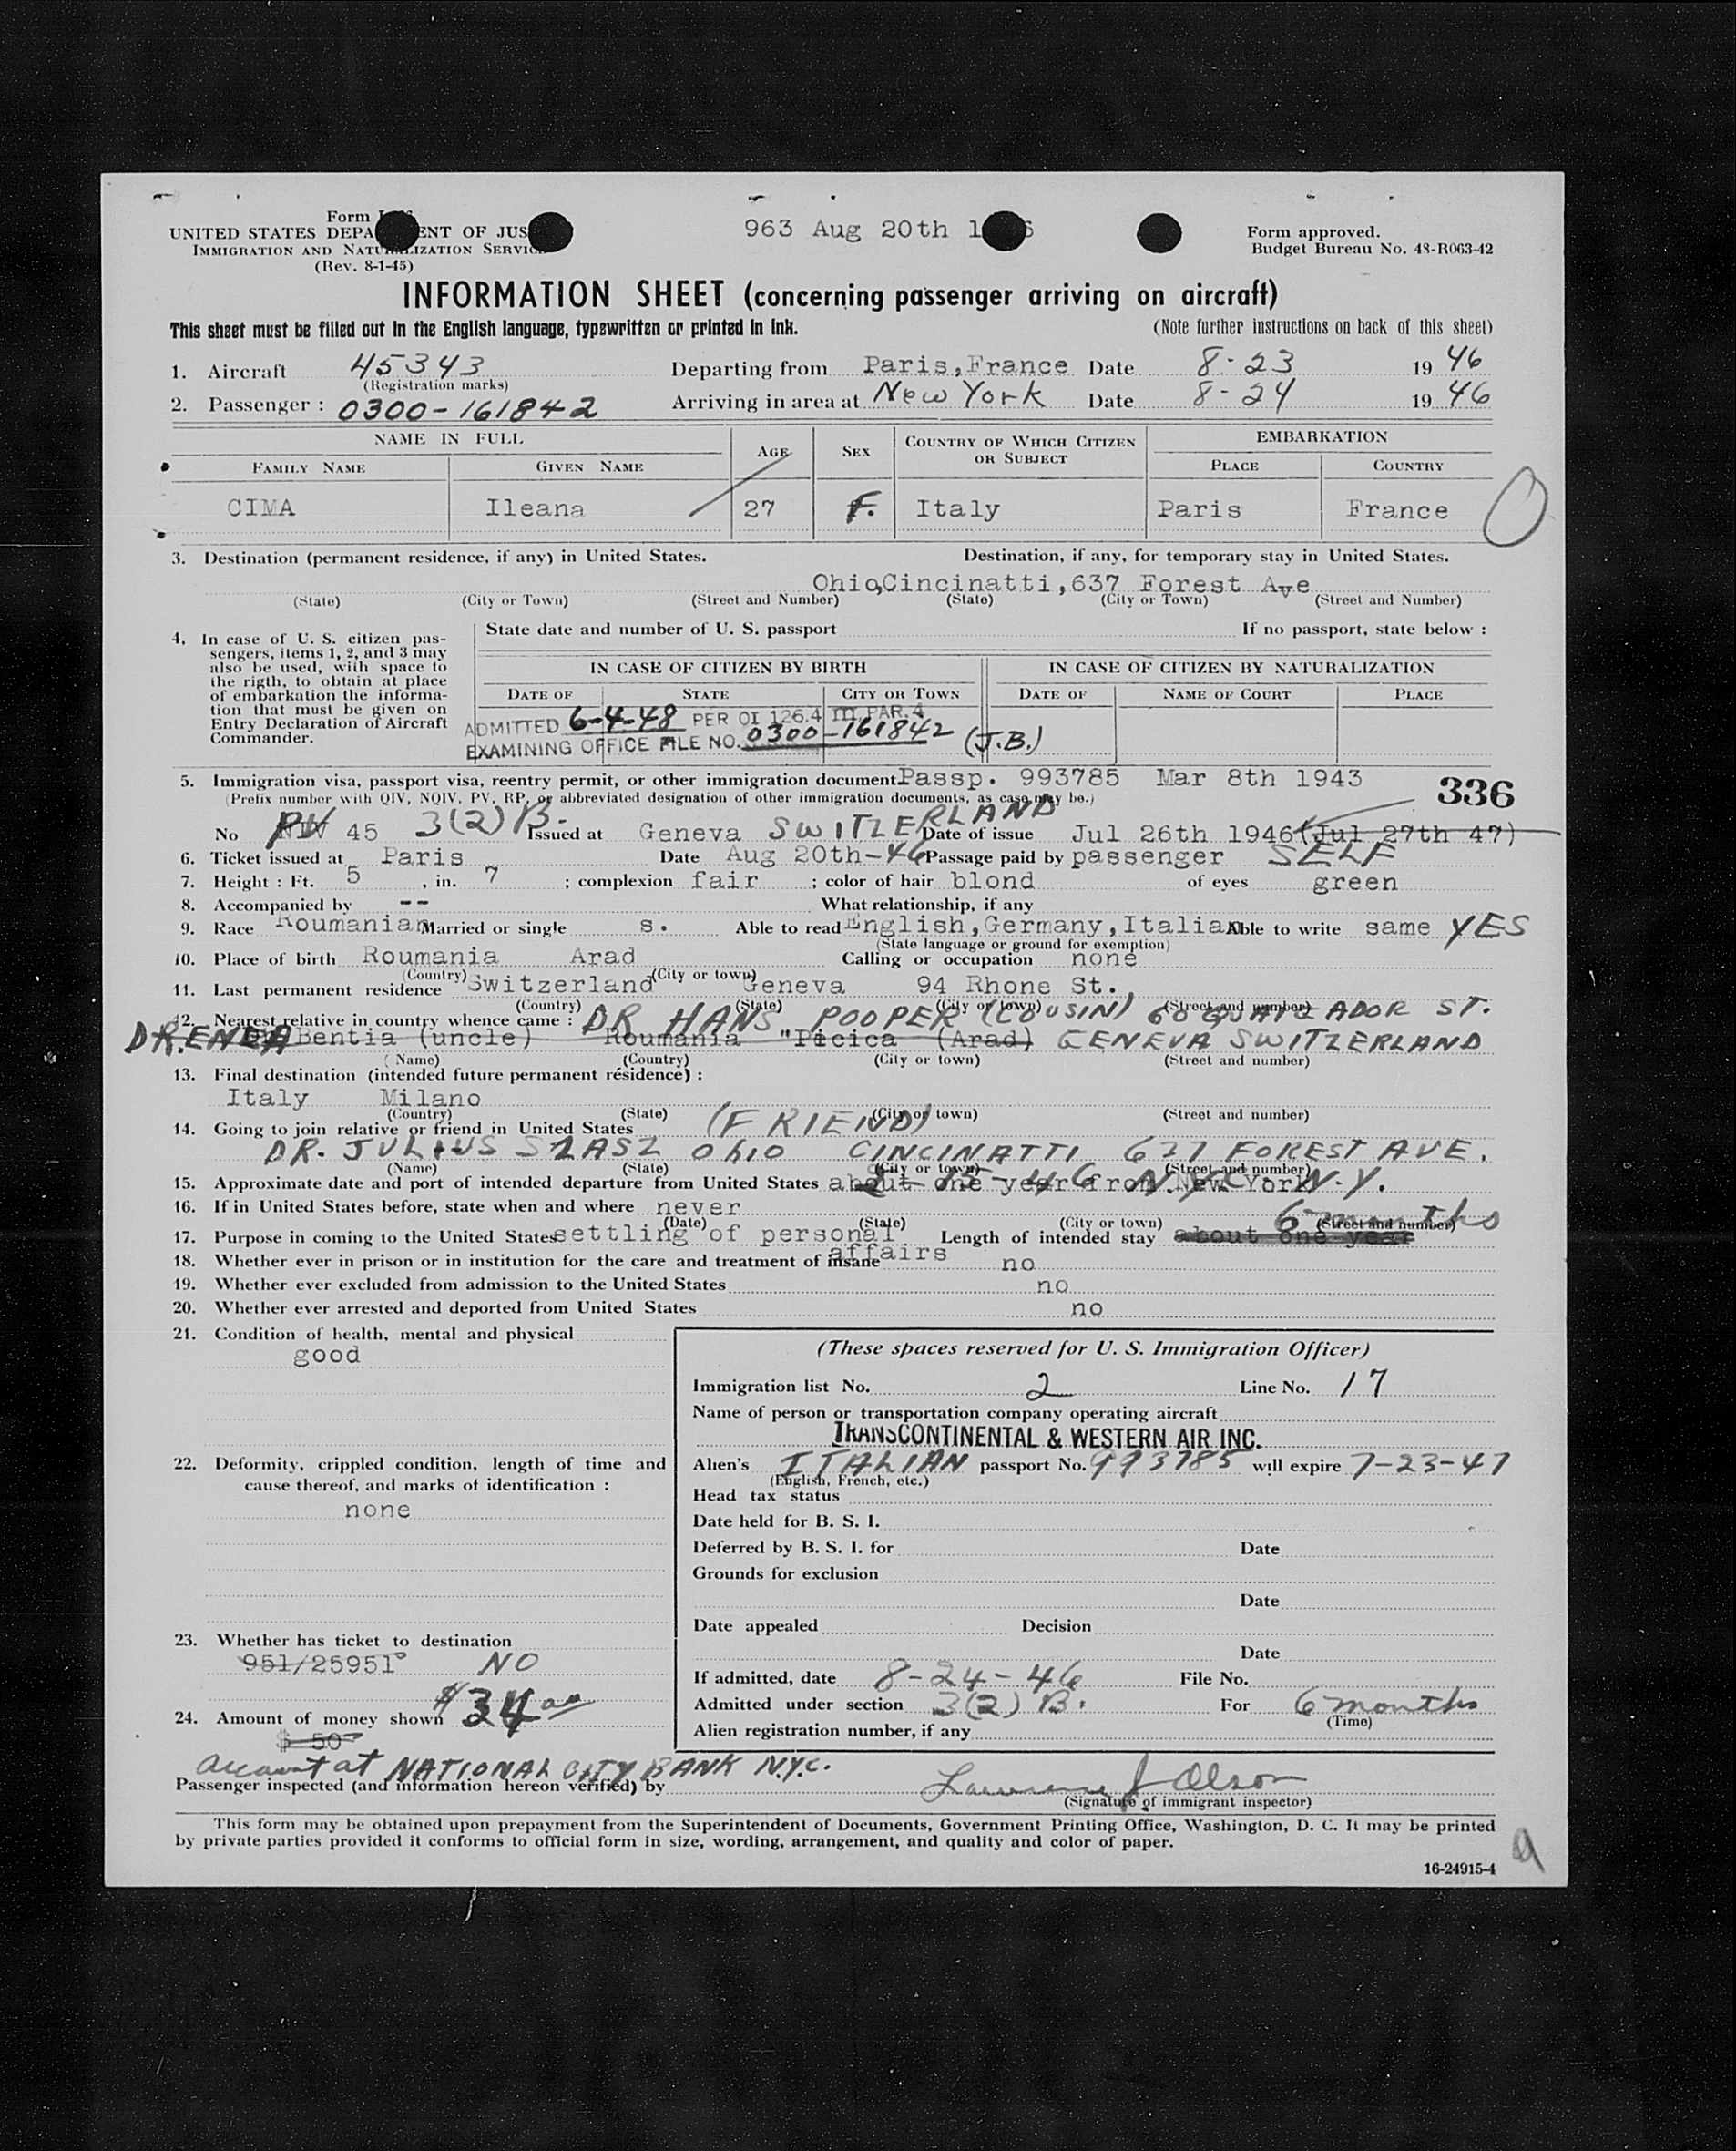 963 Aug 20th 1 6
Form
UNITED STATES DEPA ENT OF JUS
IMMIGRATION AND NATU IZATION SERVIC
(Rev. 8-1-45)
Form approved.
Budget Bureau No. 43-R063-42
INFORMATION SHEET (concerning passenger arriving on aircraft)
This sheet must be filled out in the English language, typewritten or printed in ink. (Note further instructions on back of this sheet)
1. Aircraft 45343 Departing from Paris, France Date 8-23 19 46
(Registration marks)
2. Passenger : 0300-161842 Arriving in area at New York Date 8-24 19 46
NAME IN FULL AGE SEX COUNTRY OF WHICH CITIZEN OR SUBJECT EMBARKATION
FAMILY NAME GIVEN NAME PLACE COUNTRY
CIMA Ileana 27 F. Italy Paris France
3. Destination (permanent residence, if any) in United States. Destination, if any, for temporary stay in United States.
Ohio,Cincinatti,637 Forest Ave
(State) (City or Town) (Street and Number) (State) (City or Town) (Street and Number)
4. In case of U. S. citizen pas-
sengers, items 1, 2, and 3 may
also be used, with space to
the rigth, to obtain at place
of embarkation the informa-
tion that must be given on
Entry Declaration of Aircraft
Commander.
State date and number of U. S. passport If no passport, state below :
IN CASE OF CITIZEN BY BIRTH IN CASE OF CITIZEN BY NATURALIZATION
DATE OF STATE CITY OR TOWN DATE OF NAME OF COURT PLACE
ADMITTED 6-4-48 PER OI 126.4 PAR.4
EXAMINING OFFICE FILE NO. 0300-161842 (J.B.)
5. Immigration visa, passport visa, reentry permit, or other immigration document Passp. 993785 Mar 8th 1943 336
(Prefix number with QIV, NQIV, PV, RP, or abbreviated designation of other immigration documents, as case may be.)
No PV 45 3(2)B. Issued at Geneva SWITZERLAND Date of issue Jul 26th 1946 (Jul 27th 47)
6. Ticket issued at Paris Date Aug 20th-46 Passage paid by passenger SELF
7. Height : Ft. 5 , in. 7 ; complexion fair ; color of hair blond of eyes green
8. Accompanied by -- What relationship, if any
9. Race Roumanian Married or single s. Able to read English,Germany,Italian Able to write same YES
(State language or ground for exemption)
10. Place of birth Roumania Arad Calling or occupation none
(Country) (City or town)
11. Last permanent residence Switzerland Geneva 94 Rhone St.
(Country) (State) (City or town) (Street and number)
12. Nearest relative in country whence came : DR HANS POOPER (COUSIN) 60 ADOR ST.
DR. Bentia (uncle) Roumania "Pecica (Arad) GENEVA SWITZERLAND
(Name) (Country) (City or town) (Street and number)
13. Final destination (intended future permanent résidence) :
Italy Milano
(Country) (State) (City or town) (Street and number)
14. Going to join relative or friend in United States (FRIEND)
DR. JULIUS SZASZ OHIO CINCINATTI 637 FOREST AVE.
(Name) (State) (City or town) (Street and number)
15. Approximate date and port of intended departure from United States about one year from New York N.Y.
16. If in United States before, state when and where never
(Date) (State) (City or town) (Street and number)
17. Purpose in coming to the United States settling of personal affairs Length of intended stay about one year 6 months
18. Whether ever in prison or in institution for the care and treatment of insane no
19. Whether ever excluded from admission to the United States no
20. Whether ever arrested and deported from United States no
21. Condition of health, mental and physical
good
22. Deformity, crippled condition, length of time and
cause thereof, and marks of identification :
none
23. Whether has ticket to destination
951/25951 NO
24. Amount of money shown $34.00
$ 50
account at NATIONAL CITY BANK N.Y.C.
(These spaces reserved for U. S. Immigration Officer)
Immigration list No. 2 Line No. 17
Name of person or transportation company operating aircraft
TRANSCONTINENTAL & WESTERN AIR INC.
Alien's ITALIAN passport No. 993785 will expire 7-23-47
(English, French, etc.)
Head tax status
Date held for B. S. I.
Deferred by B. S. I. for Date
Grounds for exclusion
Date
Date appealed Decision
Date
If admitted, date 8-24-46 File No.
Admitted under section 3(2)B. For 6 months
(Time)
Alien registration number, if any
Passenger inspected (and information hereon verified) by Lawrence J Olson
(Signature of immigrant inspector)
This form may be obtained upon prepayment from the Superintendent of Documents, Government Printing Office, Washington, D. C. It may be printed
by private parties provided it conforms to official form in size, wording, arrangement, and quality and color of paper.
16-24915-4